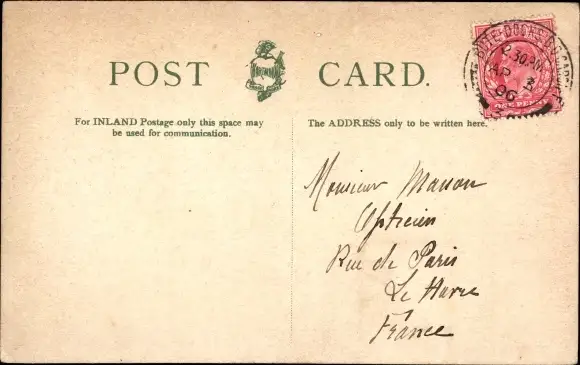 POST CARD.
For INLAND Postage only this space may
be used for communication.
The ADDRESS only to be written here.
Monsieur Masson
Opticien
Rue de Paris
Le Havre
France